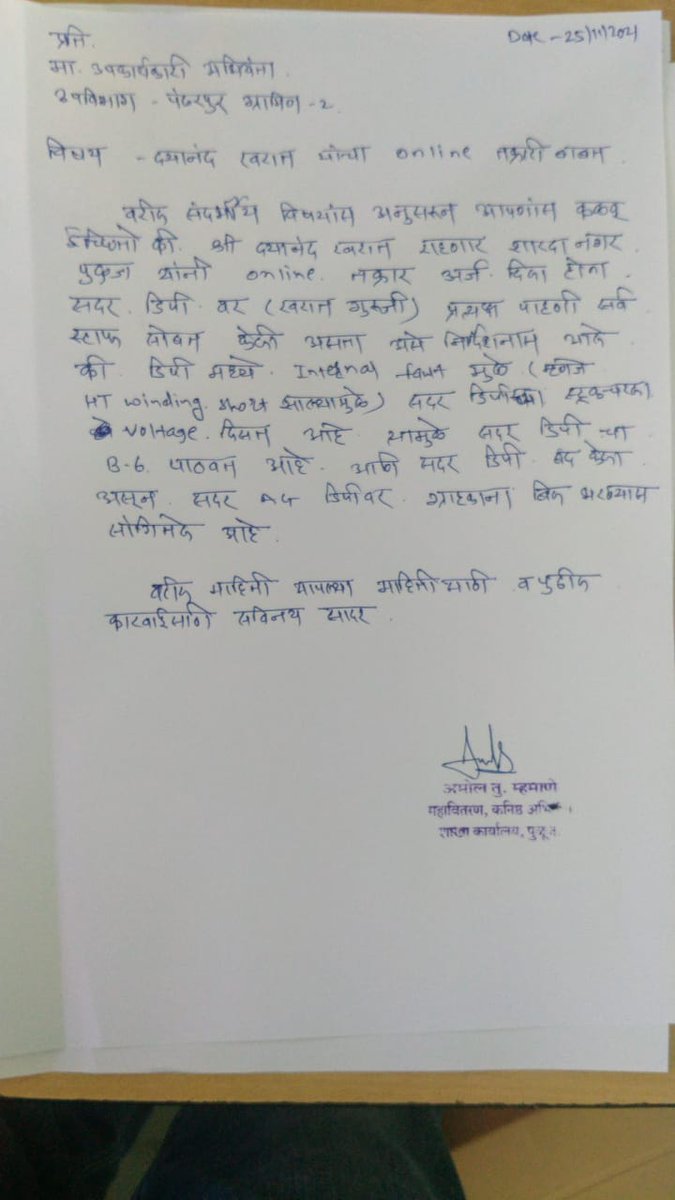 Date - 25/11/2021
प्रति.
मा. उपकार्यकारी अभियंता.
उपविभाग - पंढरपूर ग्रामिण - 2.
विषय - दयानंद खरात यांच्या online तक्रारी बाबत.
वरील संदर्भीय विषयांस अनुसरून आपणांस कळवू
इच्छितो की. श्री दयानंद खरात राहणार शारदा नगर
पुळुज यांनी online. तक्रार अर्ज दिला होता.
सदर. डिपी. वर (खरात गुरुजी) प्रत्यक्ष पाहणी सर्व
स्टाफ सोबत केली असता असे निर्दशनास आले
की. डिपी मध्ये. Internal fault मुळे (म्हणजे
HT winding. short झाल्यामुळे) सदर डिपीच्या
voltage. दिसत आहे. यामुळे सदर डिपी चा
B-6. पाठवत आहे. आणि सदर डिपी. बंद केला
असून. सदर डिपीवर. ग्राहकाना बिल भरण्यास
सांगितले आहे.
वरील माहिती आपल्या माहितीसाठी व पुढील
कारवाईसाठी सविनय सादर.
अमोल तु. म्हमाणे
महावितरण, कनिष्ठ
शाखा कार्यालय,